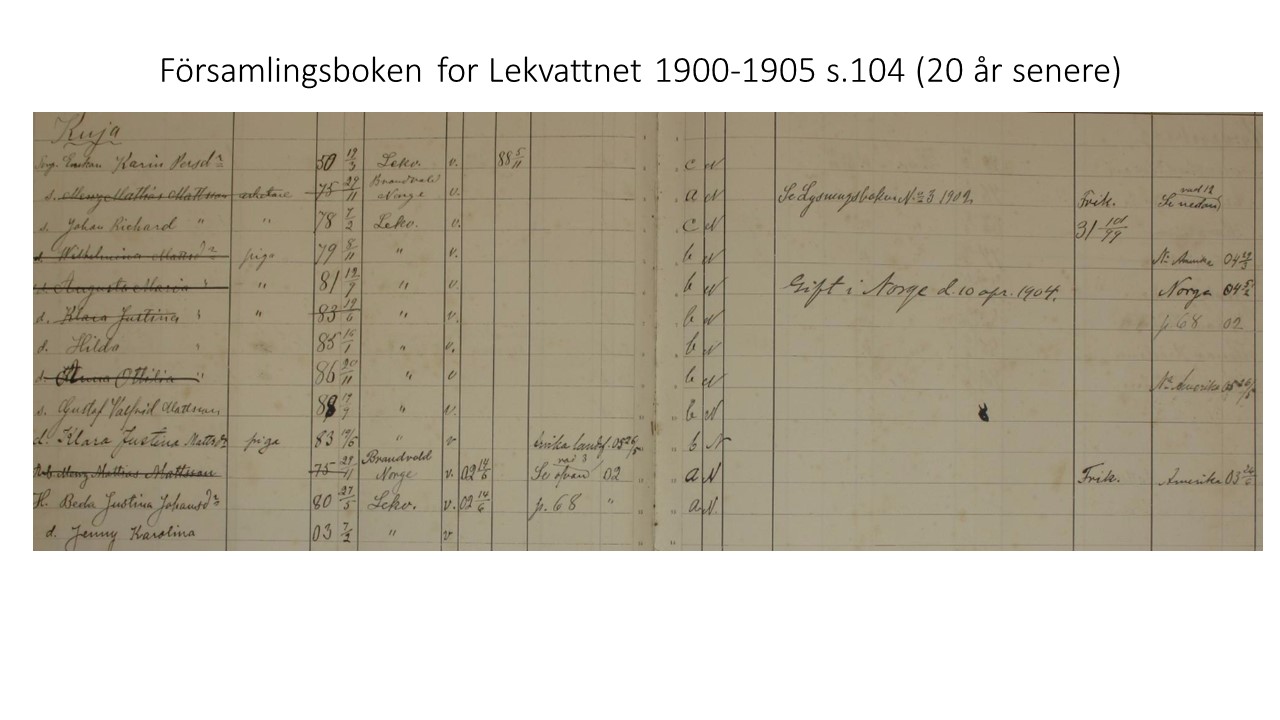 Församlingsboken for Lekvattnet 1900-1905 s.104 (20 år senere)
Kuja
Enkan Karin Persdr 50 19/3 Lekv. v. 88 5/11 c N
s. Menz Mathias Mattsson arbetare 75 29/11 Brandvold Norge v. a N Se Lysningsboken No 3 1902. Frik. Se nedan rad 12
s. Johan Richard " " 78 7/2 Lekv. v. c N 31 10/99
d. Wilhelmina Mattsdr piga 79 8/11 " v. b N N. Amrika 04
d. Augusta Maria " " 81 19/9 " v. b N Gift i Norge d. 10 apr. 1904. Norge 04
d. Klara Justina " " 83 19/6 " v. b N p. 68 02
d. Hilda " 85 16/1 " v. b N
d. Anna Ottilia " 86 20/11 " v b N N. Amerika
s. Gustaf Valfrid Mattsson 88 17/9 " v. b N
d. Klara Justina Mattsdr piga 83 19/6 " v 05 26/5 b N
Menz Mattias Mattsson 75 29/11 Brandvold Norge v. 02 14/6 Se ofvan rad 3 02 a N Frik. Amerika 03
H. Beda Justina Johansdr 80 27/5 Lekv. v. 02 14/6 p. 68 " a N.
d. Jenny Karolina 03 7/2 " v